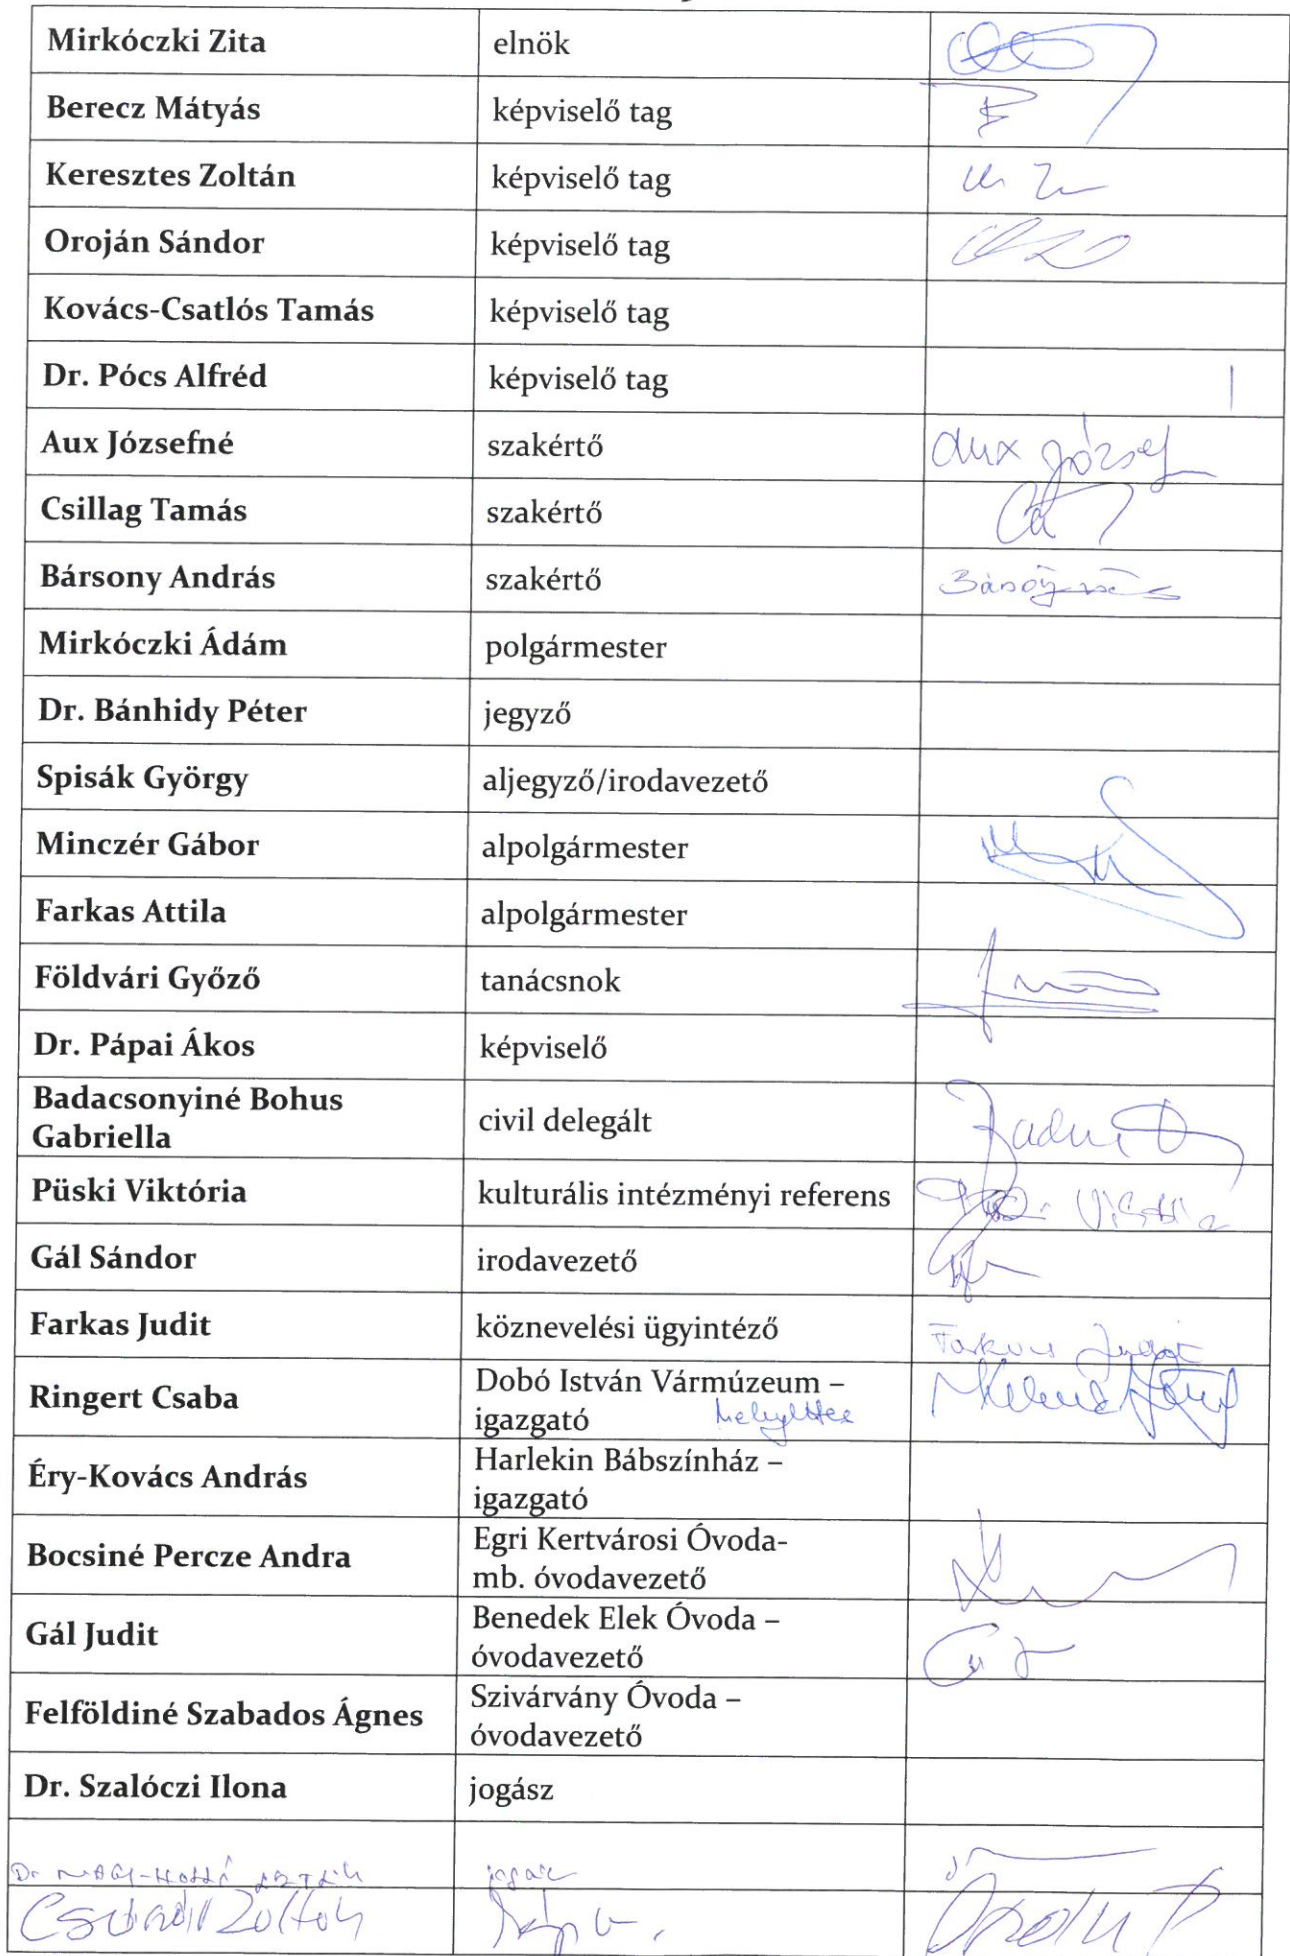 Mirkóczki Zita elnök
Berecz Mátyás képviselő tag
Keresztes Zoltán képviselő tag
Oroján Sándor képviselő tag
Kovács-Csatlós Tamás képviselő tag
Dr. Pócs Alfréd képviselő tag
Aux Józsefné szakértő Aux József
Csillag Tamás szakértő
Bársony András szakértő
Mirkóczki Ádám polgármester
Dr. Bánhidy Péter jegyző
Spisák György aljegyző/irodavezető
Minczér Gábor alpolgármester
Farkas Attila alpolgármester
Földvári Győző tanácsnok
Dr. Pápai Ákos képviselő
Badacsonyiné Bohus
Gabriella civil delegált
Püski Viktória kulturális intézményi referens
Gál Sándor irodavezető
Farkas Judit köznevelési ügyintéző Farkas Judit
Ringert Csaba Dobó István Vármúzeum –
igazgató
Éry-Kovács András Harlekin Bábszínház –
igazgató
Bocsiné Percze Andra Egri Kertvárosi Óvoda-
mb. óvodavezető
Gál Judit Benedek Elek Óvoda –
óvodavezető
Felföldiné Szabados Ágnes Szivárvány Óvoda –
óvodavezető
Dr. Szalóczi Ilona jogász
Dr
Zoltán